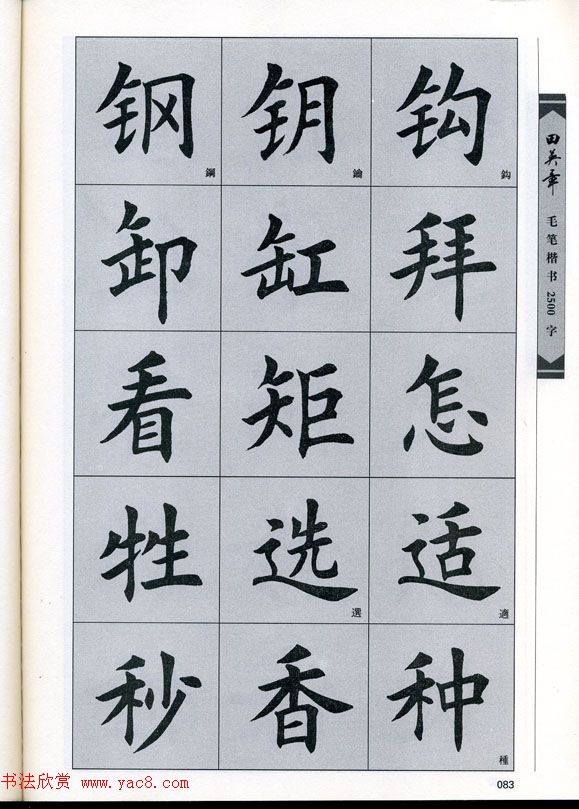 钢 鋼 钥 鑰 钩 鈎
卸 缸 拜
看 矩 怎
牲 选 選 适 適
秒 香 种 種
田英章 毛笔楷书2500字
083
书法欣赏 www.yac8.com